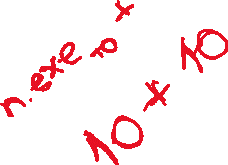 n.exe 10 x
10 * 10